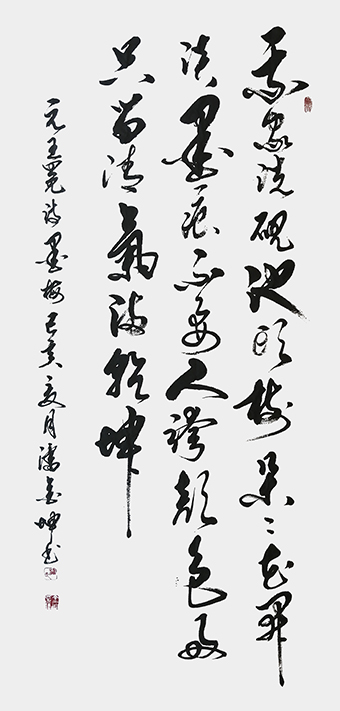 我家洗硯池頭樹朵々花開
淡墨痕不要人誇顏色好
只留清氣滿乾坤
元王冕詩墨梅己亥夏月潘金坤书